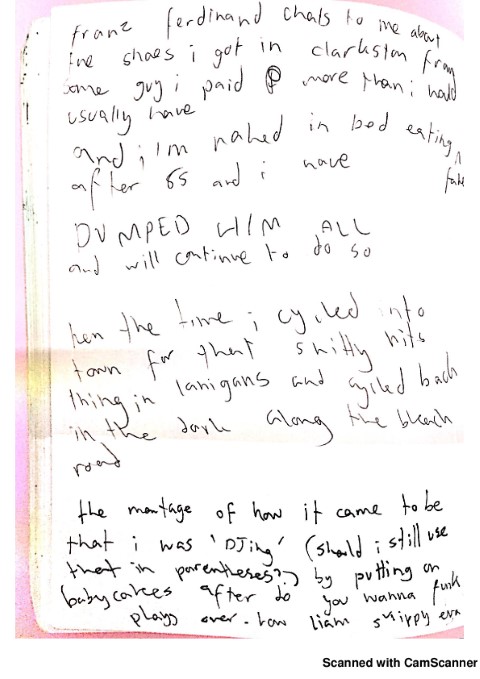 franz ferdinand chats to me about
the shoes i got in clarkston from
some guy i paid more than i would
usually have
and i'm naked in bed eating
after 8s and i have
fake
DUMPED HIM ALL
and will continue to do so
then the time i cycled into
town for that shitty hits
thing in lanigans and cycled back
in the dark along the bleach
road
the montage of how it came to be
that i was 'DJing' (should i still use
that in parentheses??) by putting on
babycakes after do you wanna funk
plays over. how liam skippy
Scanned with CamScanner